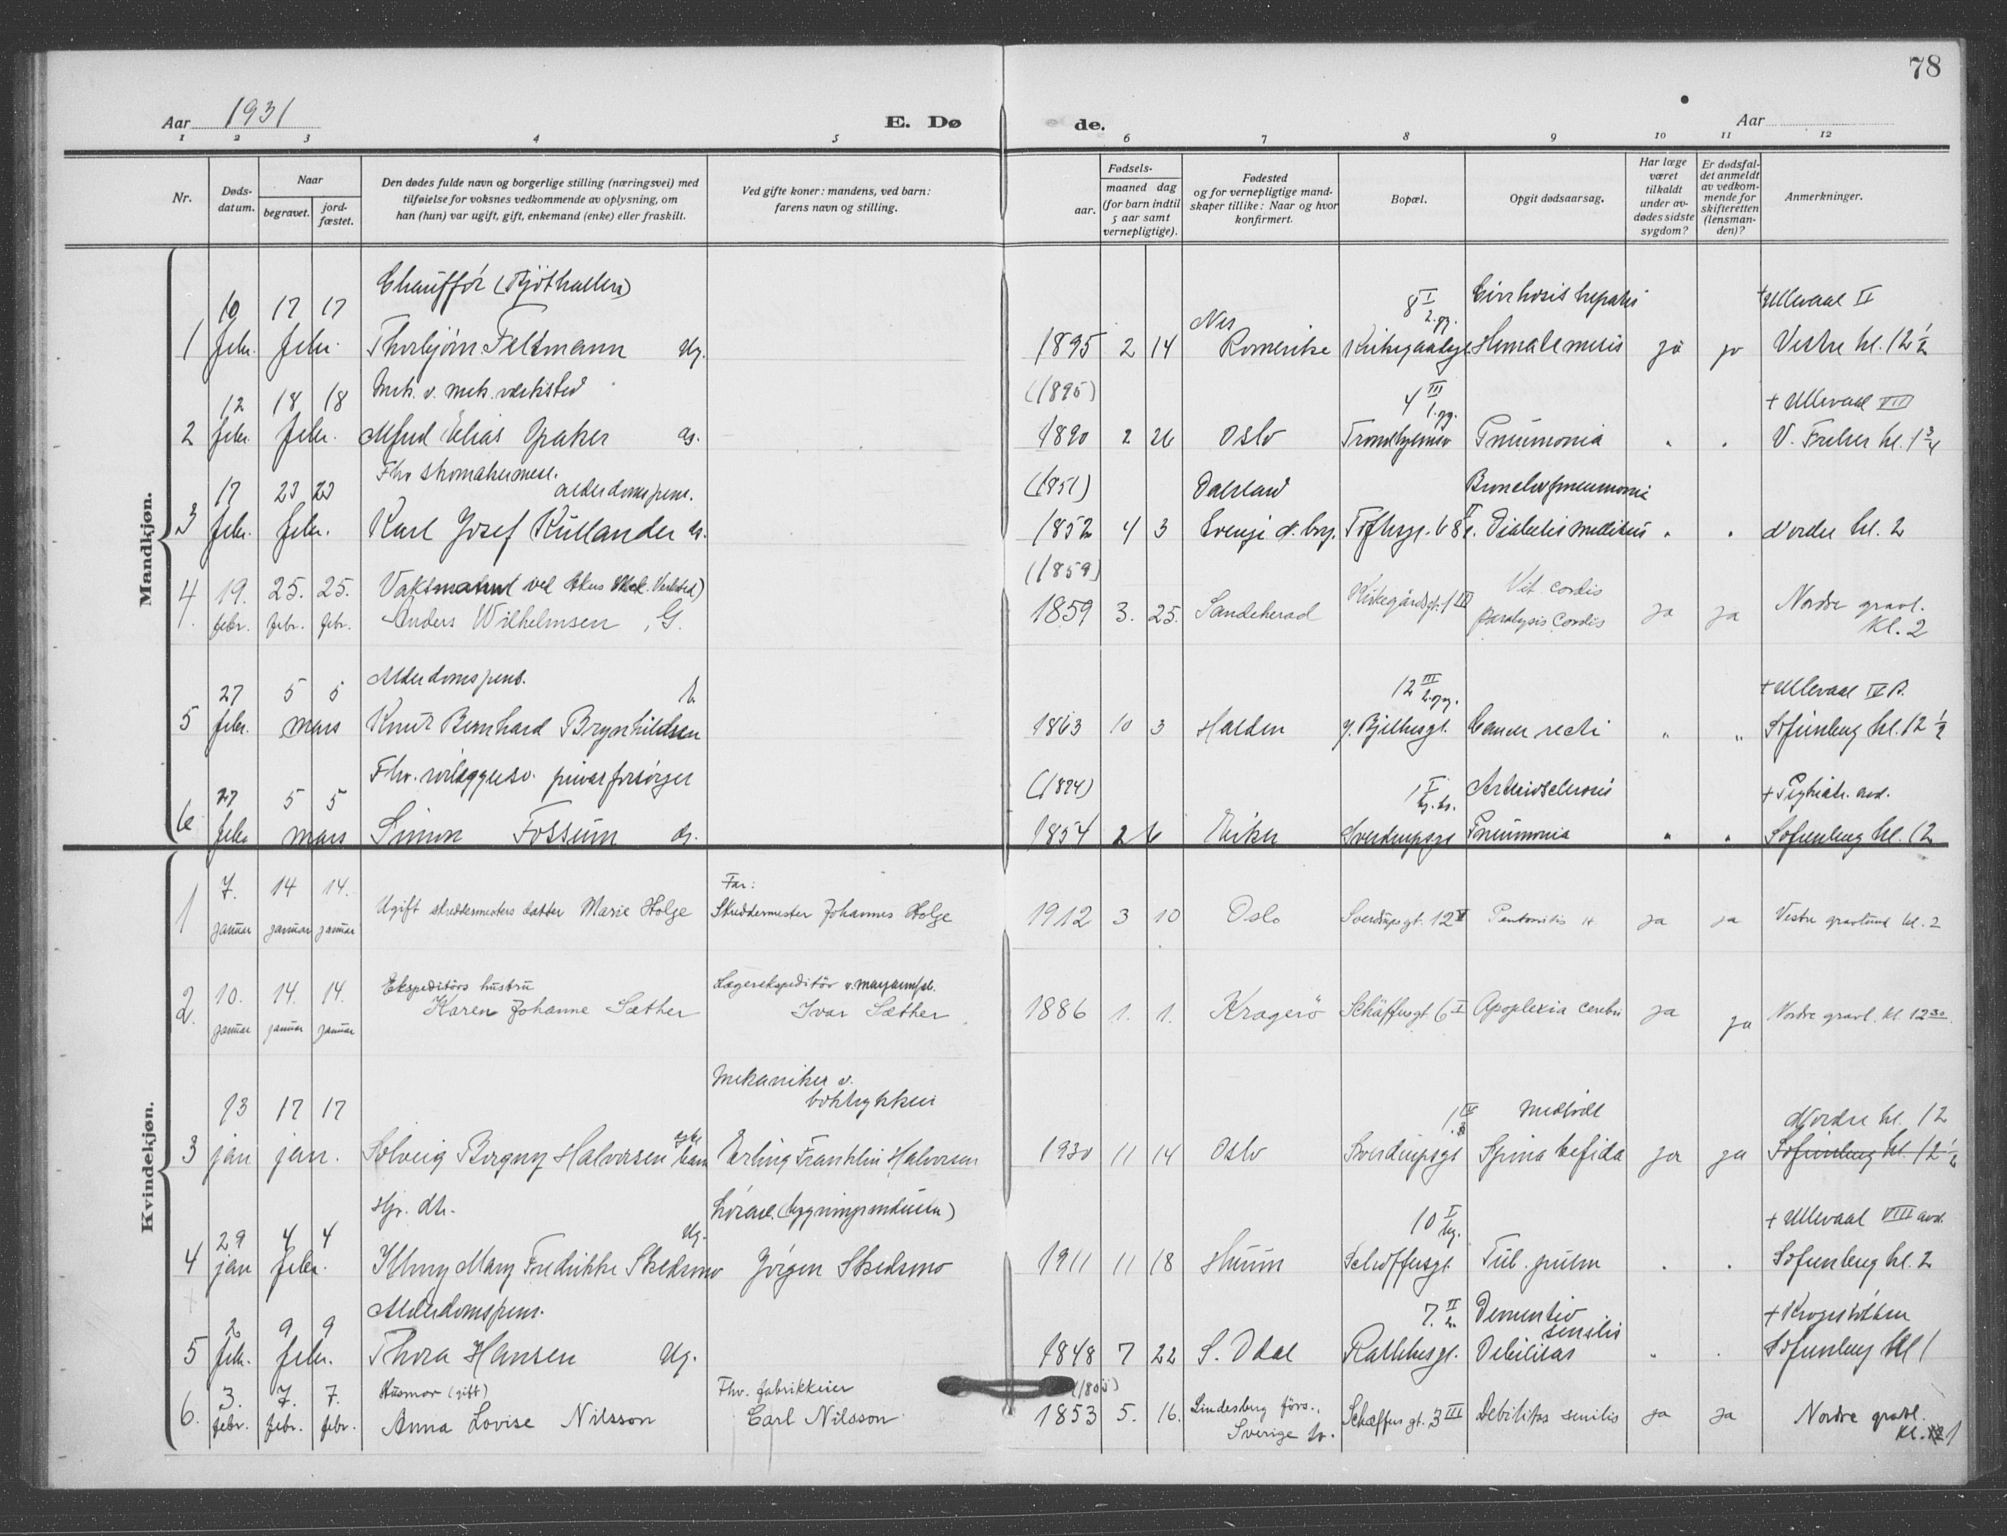 78
Aar 1931
E. Dø
de.
Aar
1 2 3 4 5 6 7 8 9 10 11 12
Nr.
Døds-
datum.
Naar
begravet.
jord-
fæstet.
Den dødes fulde navn og borgerlige stilling (næringsvei) med
tilføielse for voksnes vedkommende av oplysning, om
han (hun) var ugift, gift, enkemand (enke) eller fraskilt.
Ved gifte koner: mandens, ved barn:
farens navn og stilling.
Fødsels-
aar.
maaned dag
(for barn indtil
5 aar samt
vernepligtige).
Fødested
og for vernepligtige mand-
skaper tillike: Naar og hvor
konfirmert.
Bopæl.
Opgit dødsaarsag.
Har læge
været
tilkaldt
under av-
dødes sidste
sygdom?
Er dødsfal-
det anmeldt
av vedkom-
mende for
skifteretten
(lensman-
den)?
Anmerkninger.
Mandkjøn.
Chauffør (Kjøthallen) Cirrhosis hepatis
10 17 17 8 I 2.gg. +Ullevaal II
1 febr. febr. Thorbjørn Feltmann Ug. 1895 2 14 Nes Romerike Kirkegaatsgt. Hematemesis ja ja Vestre kl. 12 1/2
Mek. v. mek. værksted (1895) 4 III 1.gg.
12 18 18 + Ullevaal VIII
2 febr. febr. Alfred Elias Opaker G. 1890 2 26 Oslo Pneumonia " " V. Freker kl. 1 3/4
Fhv. skomakermest. (1851) Dalsland Bronchopneumonia
17 23 23 alderdomspens.
3 febr. febr. Karl Josef Kullander G. 1852 4 3 Toftesgt. 68 II Diabetis mellitus " " Nordre kl. 2
(1859)
4. 19. 25. 25. Vaktmand ved Akers Mek. Verksted) Kirkegårdsgt. 1 III Vit. cordis Nordre gravl.
febr. febr. febr. Anders Wilhelmsen , G. 1859 3. 25. Sandeherad paralysis cordis ja ja Kl. 2
Alderdomspens. 12 III 2.gg.
27 5 5 + Ullevaal IV B.
5 febr. mars Knut Bernhard Brynhildsen 1863 10 3 Halden Y. Bjelkesgt. Cancer recti " " Sofienberg kl. 12 1/2
Fhv. privatforsørget (1894) 1 I Arteriosclerosis
27 5 5 + Psykiatr. avd.
6 febr. mars Simon Fossum G. 1854 2 6 Eiker Sverdrupsgt Pneumonia " " Sofienberg kl. 12
Kvindekjøn.
7. 14 14. Far:
1 januar januar januar Ugift skreddermesters datter Marie Holge Skreddermester Johannes Holge 1912 3 10 Oslo Sverdrupsgt. 12 V ja ja Vestre gravlund kl. 2
Ekspeditørs hustru Lagerekspeditør v.
2. 10. 14. 14. Karen Johanne Sæther Ivar Sæther 1886 1. 1. Kragerø Schäffersgt 6 I Apoplexia cerebri ja ja Nordre gravl. kl. 12 30
januar januar januar
Mekaniker v.
boktrykkeri
13 17 17 1 IV Medfødt Nordre kl. 12
3 jan jan. Solveig Borgny Halvorsen barn Erling Franklin Halvorsen 1930 11 14 Oslo Sverdrupsgt Spina bifida ja ja Sofienberg kl. 12 1/2
Hjv. dtr. (bygningsindustri)
29 4 4 Ug. 10 I + Ullevaal VIII avd.
4 jan febr. Mary Fredrikke Skedsmo Jørgen Skedsmo 1911 11 18 Hurum Schæffersgt. Tub. pulm . . Sofienberg kl. 2
Alderdomspens. 7. II Dementia
2 9 9 senilis + Krogstøtten
5 febr. febr. Thora Hansen Ug. 1848 7 22 S. Odal Rathkesgt. Debilitas " . Sofienberg kl 1
3. 7. 7. Husmor (gift) Fhv. fabrikkeier
6. febr. febr. febr. Anna Lovise Nilsson Carl Nilsson 1853 5. 16. Lindesberg förs., Schæffersgt. 3 III Debilitas senilis ja ja Nordre gravl.
Sverige Kl. 1